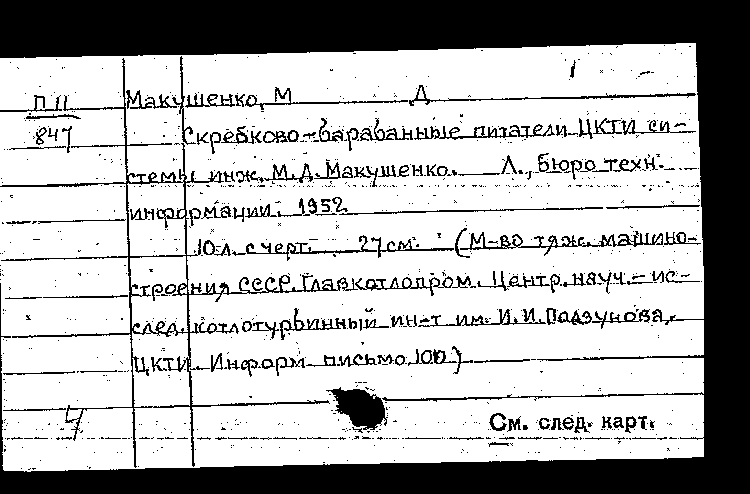 1
П 11 Макушенко, М Д
847 Скребково-барабанные питатели ЦКТИ си-
стемы инж. М.Д. Макушенко. Л., Бюро техн.
информации. 1952
10 л. с черт. 27 см. (М-во тяж. машино-
строения СССР. Главкотлопром. Центр. науч.-ис-
след. котлотурбинный ин-т им. И.И. Ползунова,
ЦКТИ. Информ письмо, 100)
4 См. след. карт.